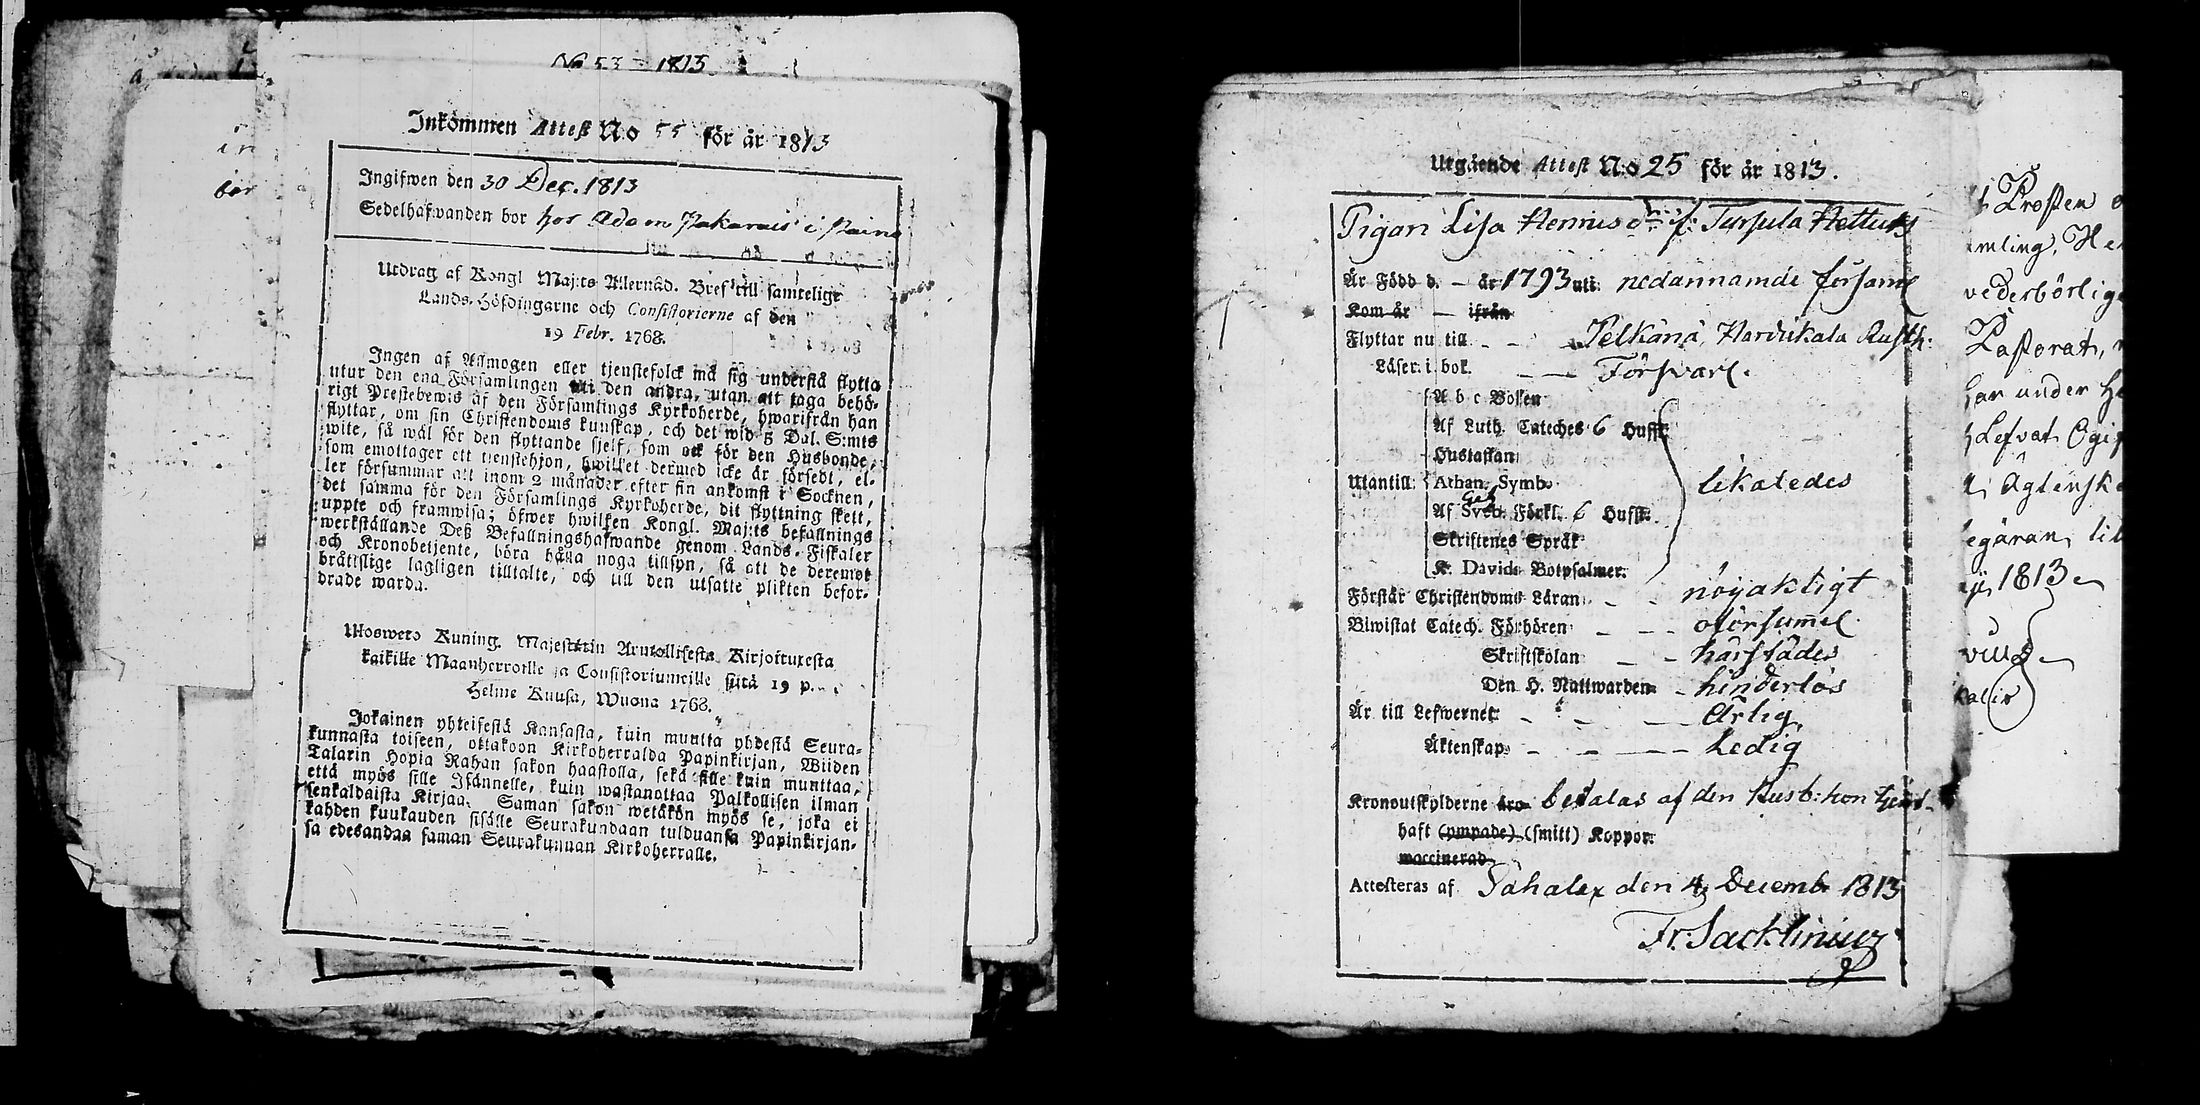 No 53 - 1813
Inkommen Attest No 55 för år 1813
Ingifwen den 30 Dec. 1813
Sedelhafwanden bor hos Adam i
Utdrag af Kongl Maj:ts Allernåd. Bref till samtelige
Lands-Höfdingarne och Consistorierne af den
19 Febr. 1768.
Ingen af Allmogen eller tjenstefolck må sig understå flytta
utur den ena Församlingen til den andra, utan att taga behö-
rigt Prestebewis af den Församlings Kyrkoherde, hwarifrån han
flyttar, om sin Christendoms kunskap, och det wid 5 Dal. S:mts
wite, så wäl för den flyttande sjelf, som ock för den Husbonde,
som emottager ett tienstehjon, hwilket dermed icke är försedt, el-
ler försummar att inom 2 månader efter sin ankomst i Socknen,
det samma för den Församlings Kyrkoherde, dit flyttning skett,
uppte och framwisa; öfwer hwilken Kongl. Maj:ts befallnings
werkställande Deß Befallningshafwande genom Lands-Fiskaler
och Kronobetjente, böra hålla noga tillsyn, så att de deremot
bråtislige lagligen tilltalte, och till den utsatte plikten befor-
drade warda.
Ulosweto Kuning. Majestetin Armollisesta Kirjoituxesta
kaikille Maanherroille ja Consistoriumeille siitä 19 p.
Helme Kuusa, Wuona 1768.
Jokainen yhteisestä Kansasta, kuin muutta yhdestä Seura-
kunnasta toiseen, ottakoon Kirkoherralda Papinkirjan, Wiiden
Talarin Hopia Rahan sakon haastolla, sekä sille kuin munttaa,
että myös sille Isännelle, kuin wastanottaa Palkollisen ilman
senkaldaista Kirjaa. Saman sakon wetäkön myös se, joka ei
kahden kuukauden sisälle Seurakundaan tulduansa Papinkirjan-
sa edesandaa saman Seurakunnan Kirkoherralle.
Utgående Attest No 25 för år 1813.
Pigan Lisa Hennus dr f.
Är Född d. — år 1793 uti nedannamde församl
Kom år — ifrån
Flyttar nu till - - - Pelkänä, Rusth.
Läser i bok. — — Försvarl.
A b c Boken
Af Luth. Cateches 6 Hufst.
Hustaflan
Utantill Athan. Symb. likaledes
Af Sveb. Förkl. 6 Hufst.
Skriftenes Språk
K. Davids Botpsalmer.
Förstår Christendoms Läran - - nöyaktigt
Biwistat Catech. Förhören - - - oförsumel.
Skriftskolan - - härstädes
Den H. Nattwarden - hinderlös
Är till Lefwernet - - — ärlig
Äktenskap - - — Ledig
Kronoutskylderne äro betalas af den Husb: hon
haft (ympade) (smitt) Koppor.
waccinerad
Attesteras af Sahalax den 4 Decemb 1813
Fr: Sacklinius
Prosten
Pastorat,
har under
egäran
1813